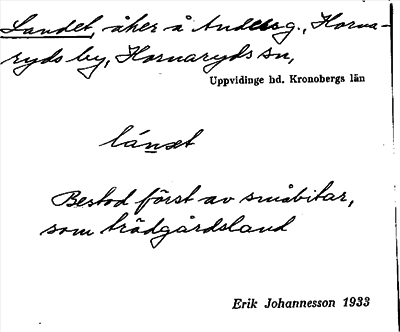 Landet, åker å Anders g., Horna-
ryds by, Hornaryds sn,
Uppvidinge hd. Kronobergs län
lánət
Bestod först av småbitar,
som trädgårdsland
Erik Johannesson 1933